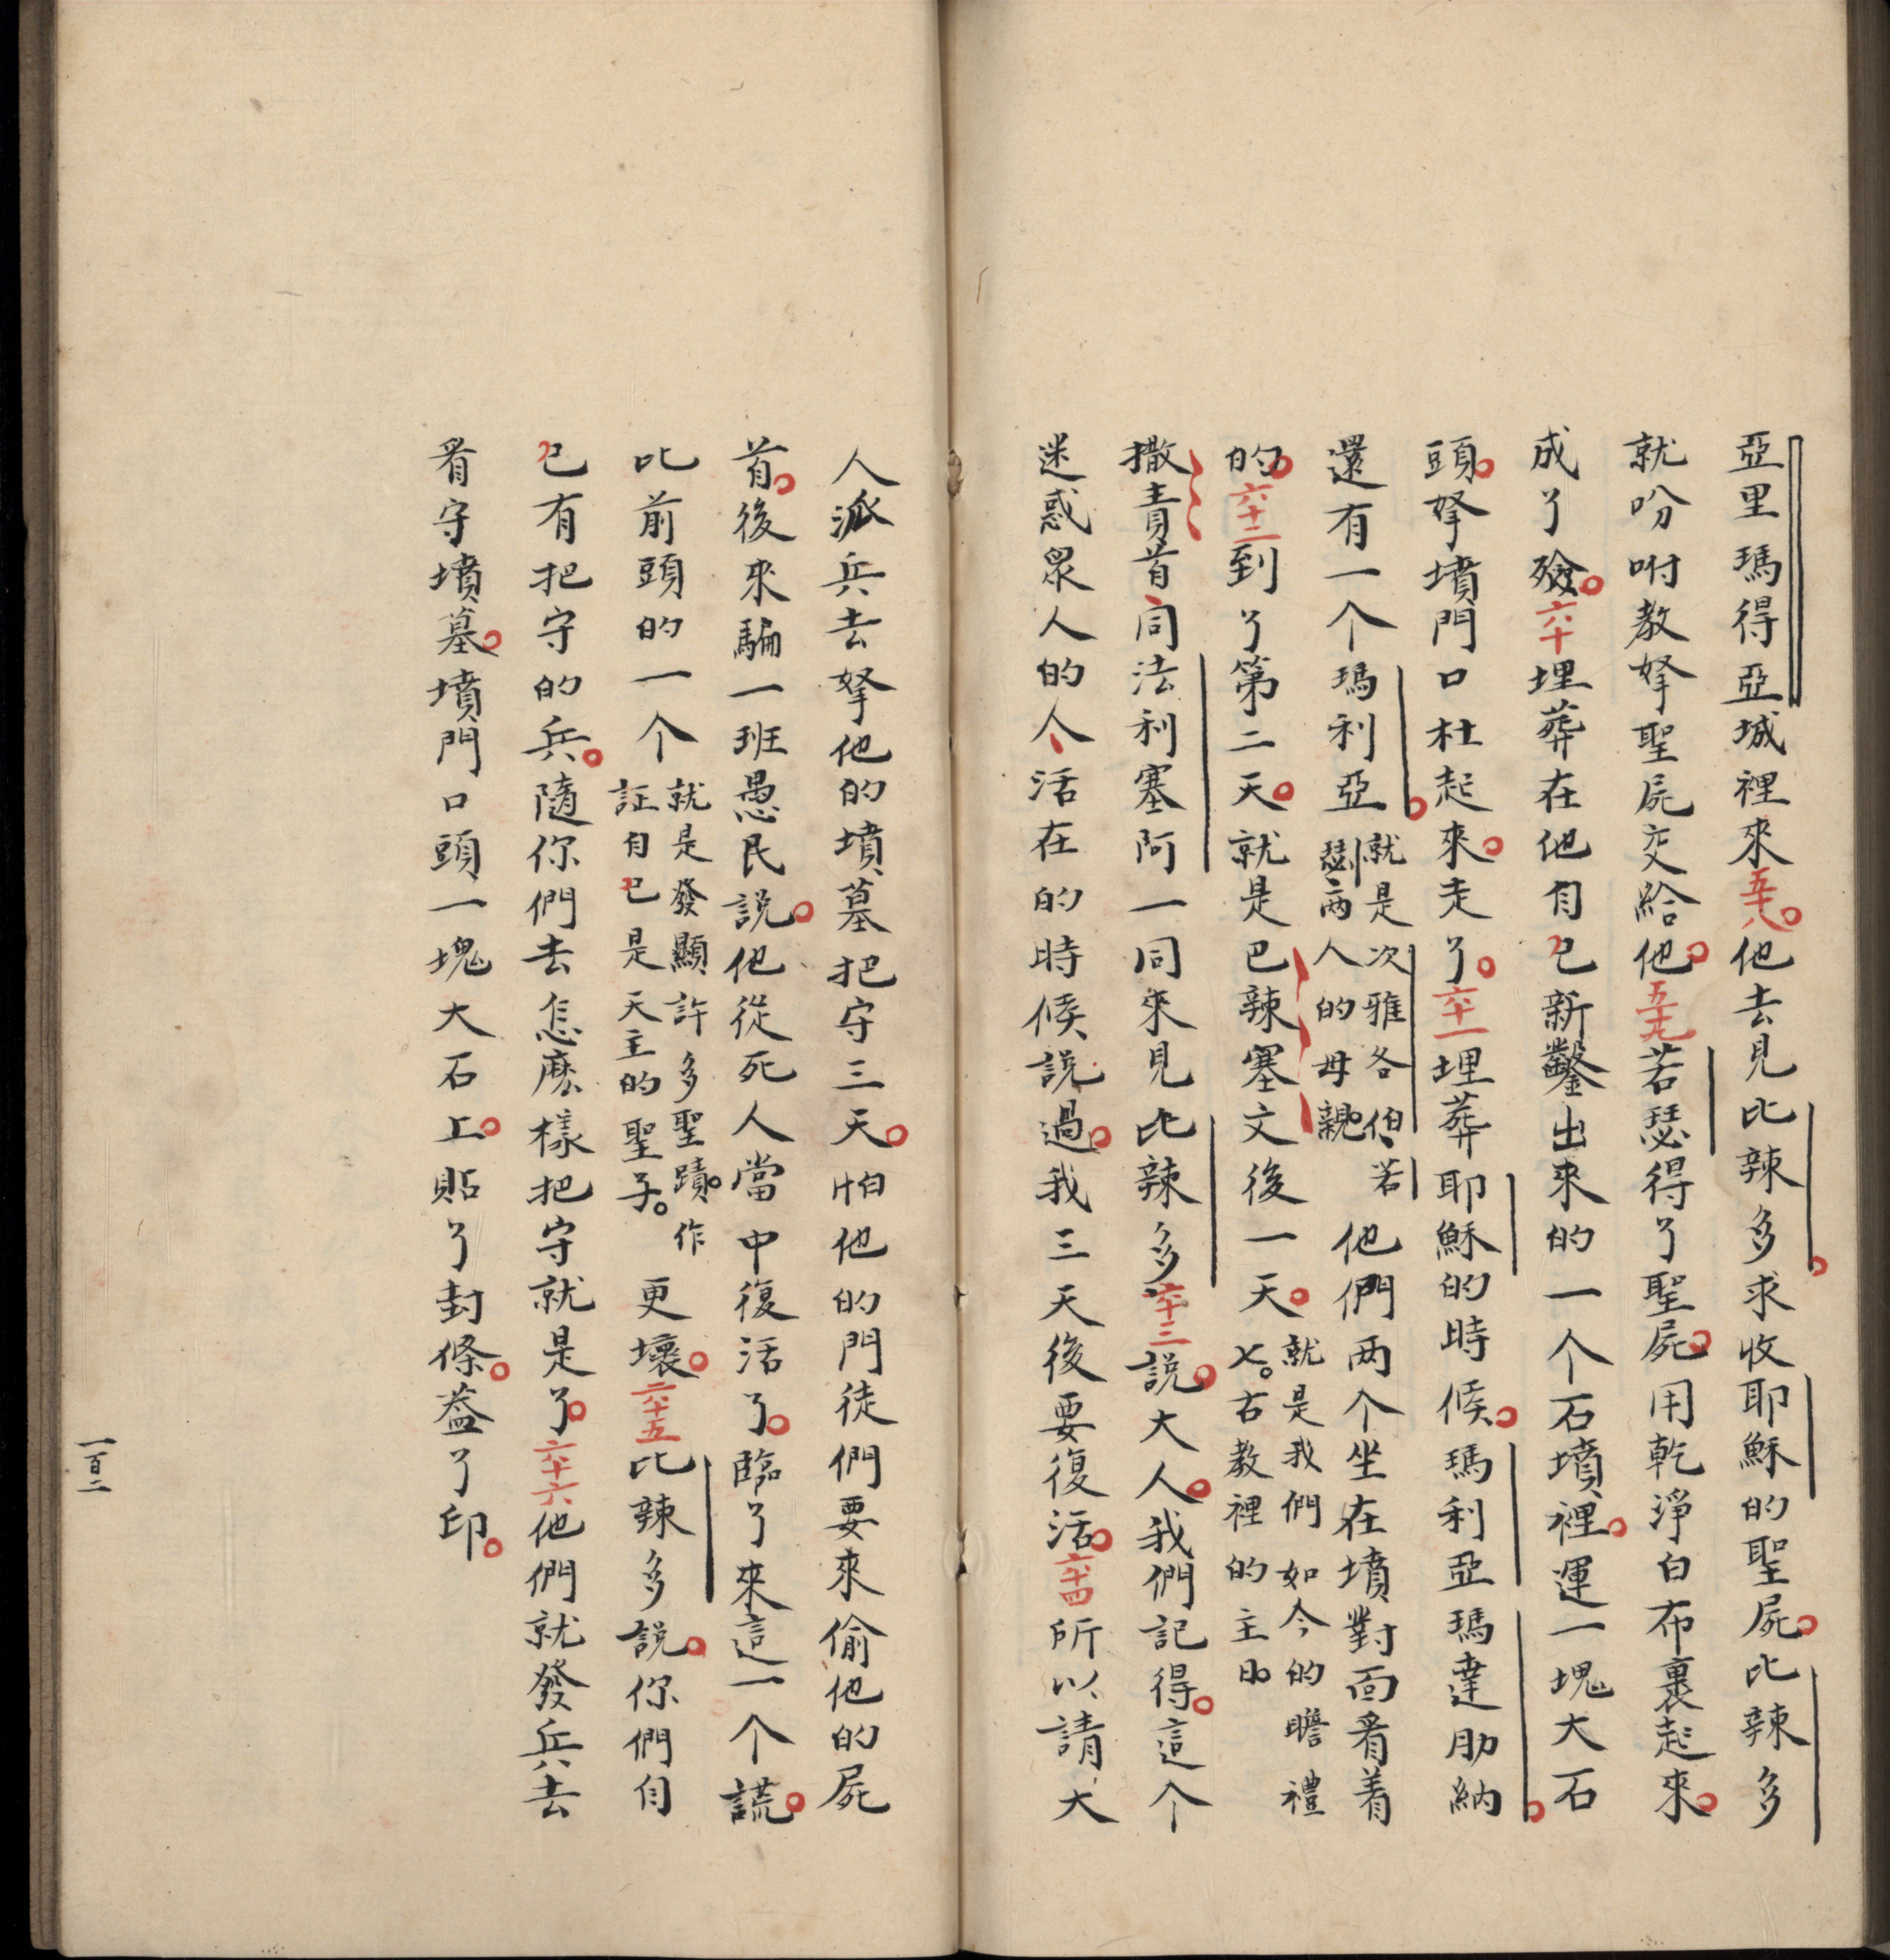 亞里瑪得亞城裡來五十八。他去見比辣多。求收耶穌的聖屍。比辣多
就吩咐教拏聖屍交給他。五十九若瑟得了聖屍。用乾淨白布裹起來。
成了殮。六十埋葬在他自己新鑿出來的一个石墳裡。運一塊大石
頭。拏墳門口杜起來。走了。六十一埋葬耶穌的時候。瑪利亞瑪達肋納。
還有一个瑪利亞。就是次雅各伯、若瑟兩人的母親 他們兩个坐在墳對面看着
的。六十二到了第二天。就是巴辣塞文後一天。就是我們如今的瞻禮七。古教裡的主日
撒責首、同法利塞阿一同來見比辣多、六十三說。大人。我們記得。這个
迷惑衆人的人、活在的時候說過。我三天後要復活。六十四所以請大
人派兵去拏他的墳墓把守三天。怕他的門徒們要來偷他的屍
首。後來騙一班愚民說。他從死人當中復活了。臨了來這一个謊。
比前頭的一个 就是發顯許多聖蹟。作証自己是天主的聖子。 更壞。六十五比辣多說。你們自
己有把守的兵。隨你們去怎麽樣把守就是了。六十六他們就發兵去
看守墳墓。墳門口頭一塊大石上。貼了封條。蓋了印。
一百二